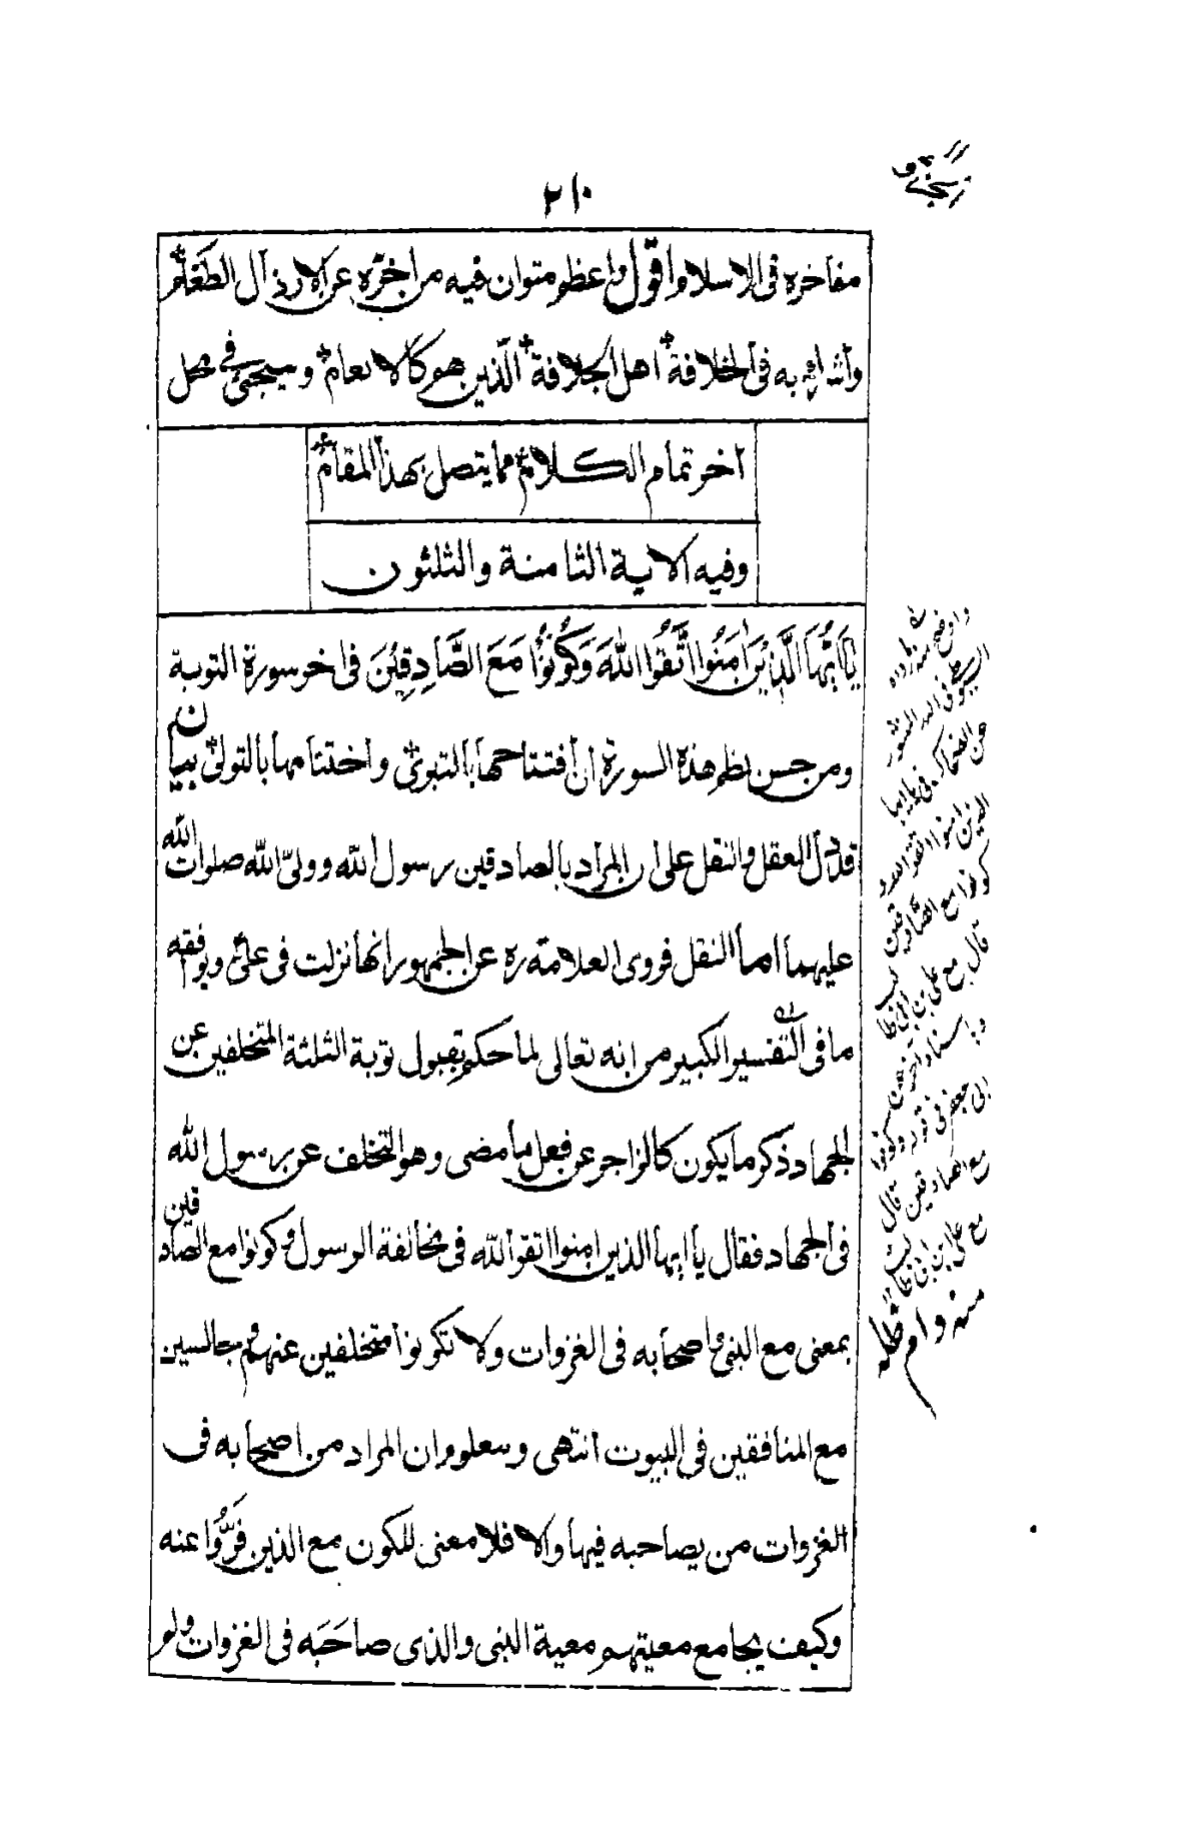 ٢١٠
مفاخره فی الاسلام و اقول و اعظم متوان فیه من اخّره عن الارذال الطغام
به فی الخلافة اهل الجلافة الّذین هم کالانعام و سیجیٔ فی محل
آخر تمام الکلام مما یتصل بهذا المقام
و فیه الایة الثامنة و الثلثون
یٰاَیُّهَا الَّذِیْنَ اٰمَنُوا اتَّقُوا اللهَ وَکُوْنُوْا مَعَ الصَّادِقِیْنَ فی اخر سورة التوبة
و من حسن نظم هذه السورة ان افتتاحها بالتبری و اختتامها بالتولی بیان
قد دل العقل و النقل علی ان المراد بالصادقین رسول الله و ولیّ الله صلوات الله
علیهما اما النقل فروی العلامة ره عن الجمهور انها نزلت فی علیؑ و یوفقه
ما فی التفسیر الکبیر من انه تعالی لما حکم بقبول توبة الثلثة المتخلفین عن
الجهاد ذکر ما یکون کالزاجر عن فعل ما مضی و هو التخلف عن رسول الله
فی الجهاد فقال یا ایها الذین امنوا اتقوا الله فی مخالفة الرسول و کونوا مع الصادقین
بمعنی مع النبی و اصحابه فی الغزوات و لا تکونوا متخلفین عنهم و جالسین
مع المنافقین فی البیوت انتهی و معلوم ان المراد من اصحابه فی
الغزوات من یصاحبه فیها و الا فلا معنی للکون مع الذین فَرُّوْا عنه
و کیف یجامع معیتهم معیة النبی و الذی صاحَبَه فی الغزوات و لو
السیوطی فی الدر المنثور
عن الضحاک فی
الذین امنوا اتقوا الله و
کونوا مع الصادقین
قال مع علی بن ابی طالب
ابی جعفر فی قوله و کونوا
مع الصادقین قال
مع علی ابن ابی طالب
منه دام ظله